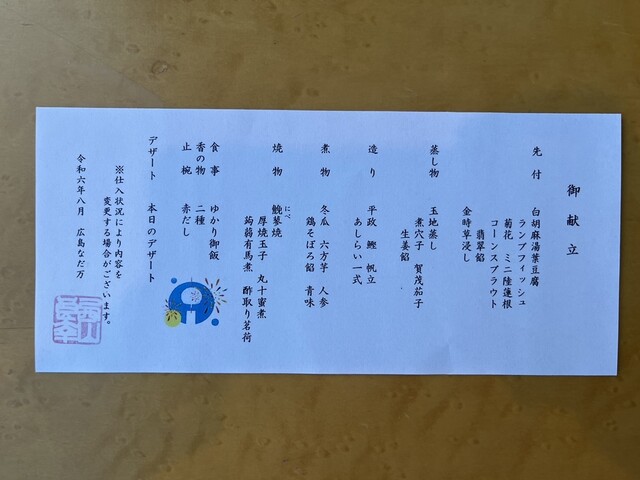 御献立
先付 白胡麻湯葉豆腐
ランプフィッシュ
菊花 ミニ陸蓮根
コーンスプラウト
翡翠餡
金時草浸し
蒸し物 玉地蒸し
煮穴子 賀茂茄子
生姜餡
造り 平政 鰹 帆立
あしらい一式
煮物 冬瓜 六方芋 人参
鶏そぼろ餡 青味
焼物 鮸蓼焼
にべ
厚焼玉子 丸十蜜煮
蒟蒻有馬煮 酢取り茗荷
食事 ゆかり御飯
香の物 二種
止椀 赤だし
デザート 本日のデザート
※仕入状況により内容を
変更する場合がございます。
令和六年八月 広島なだ万